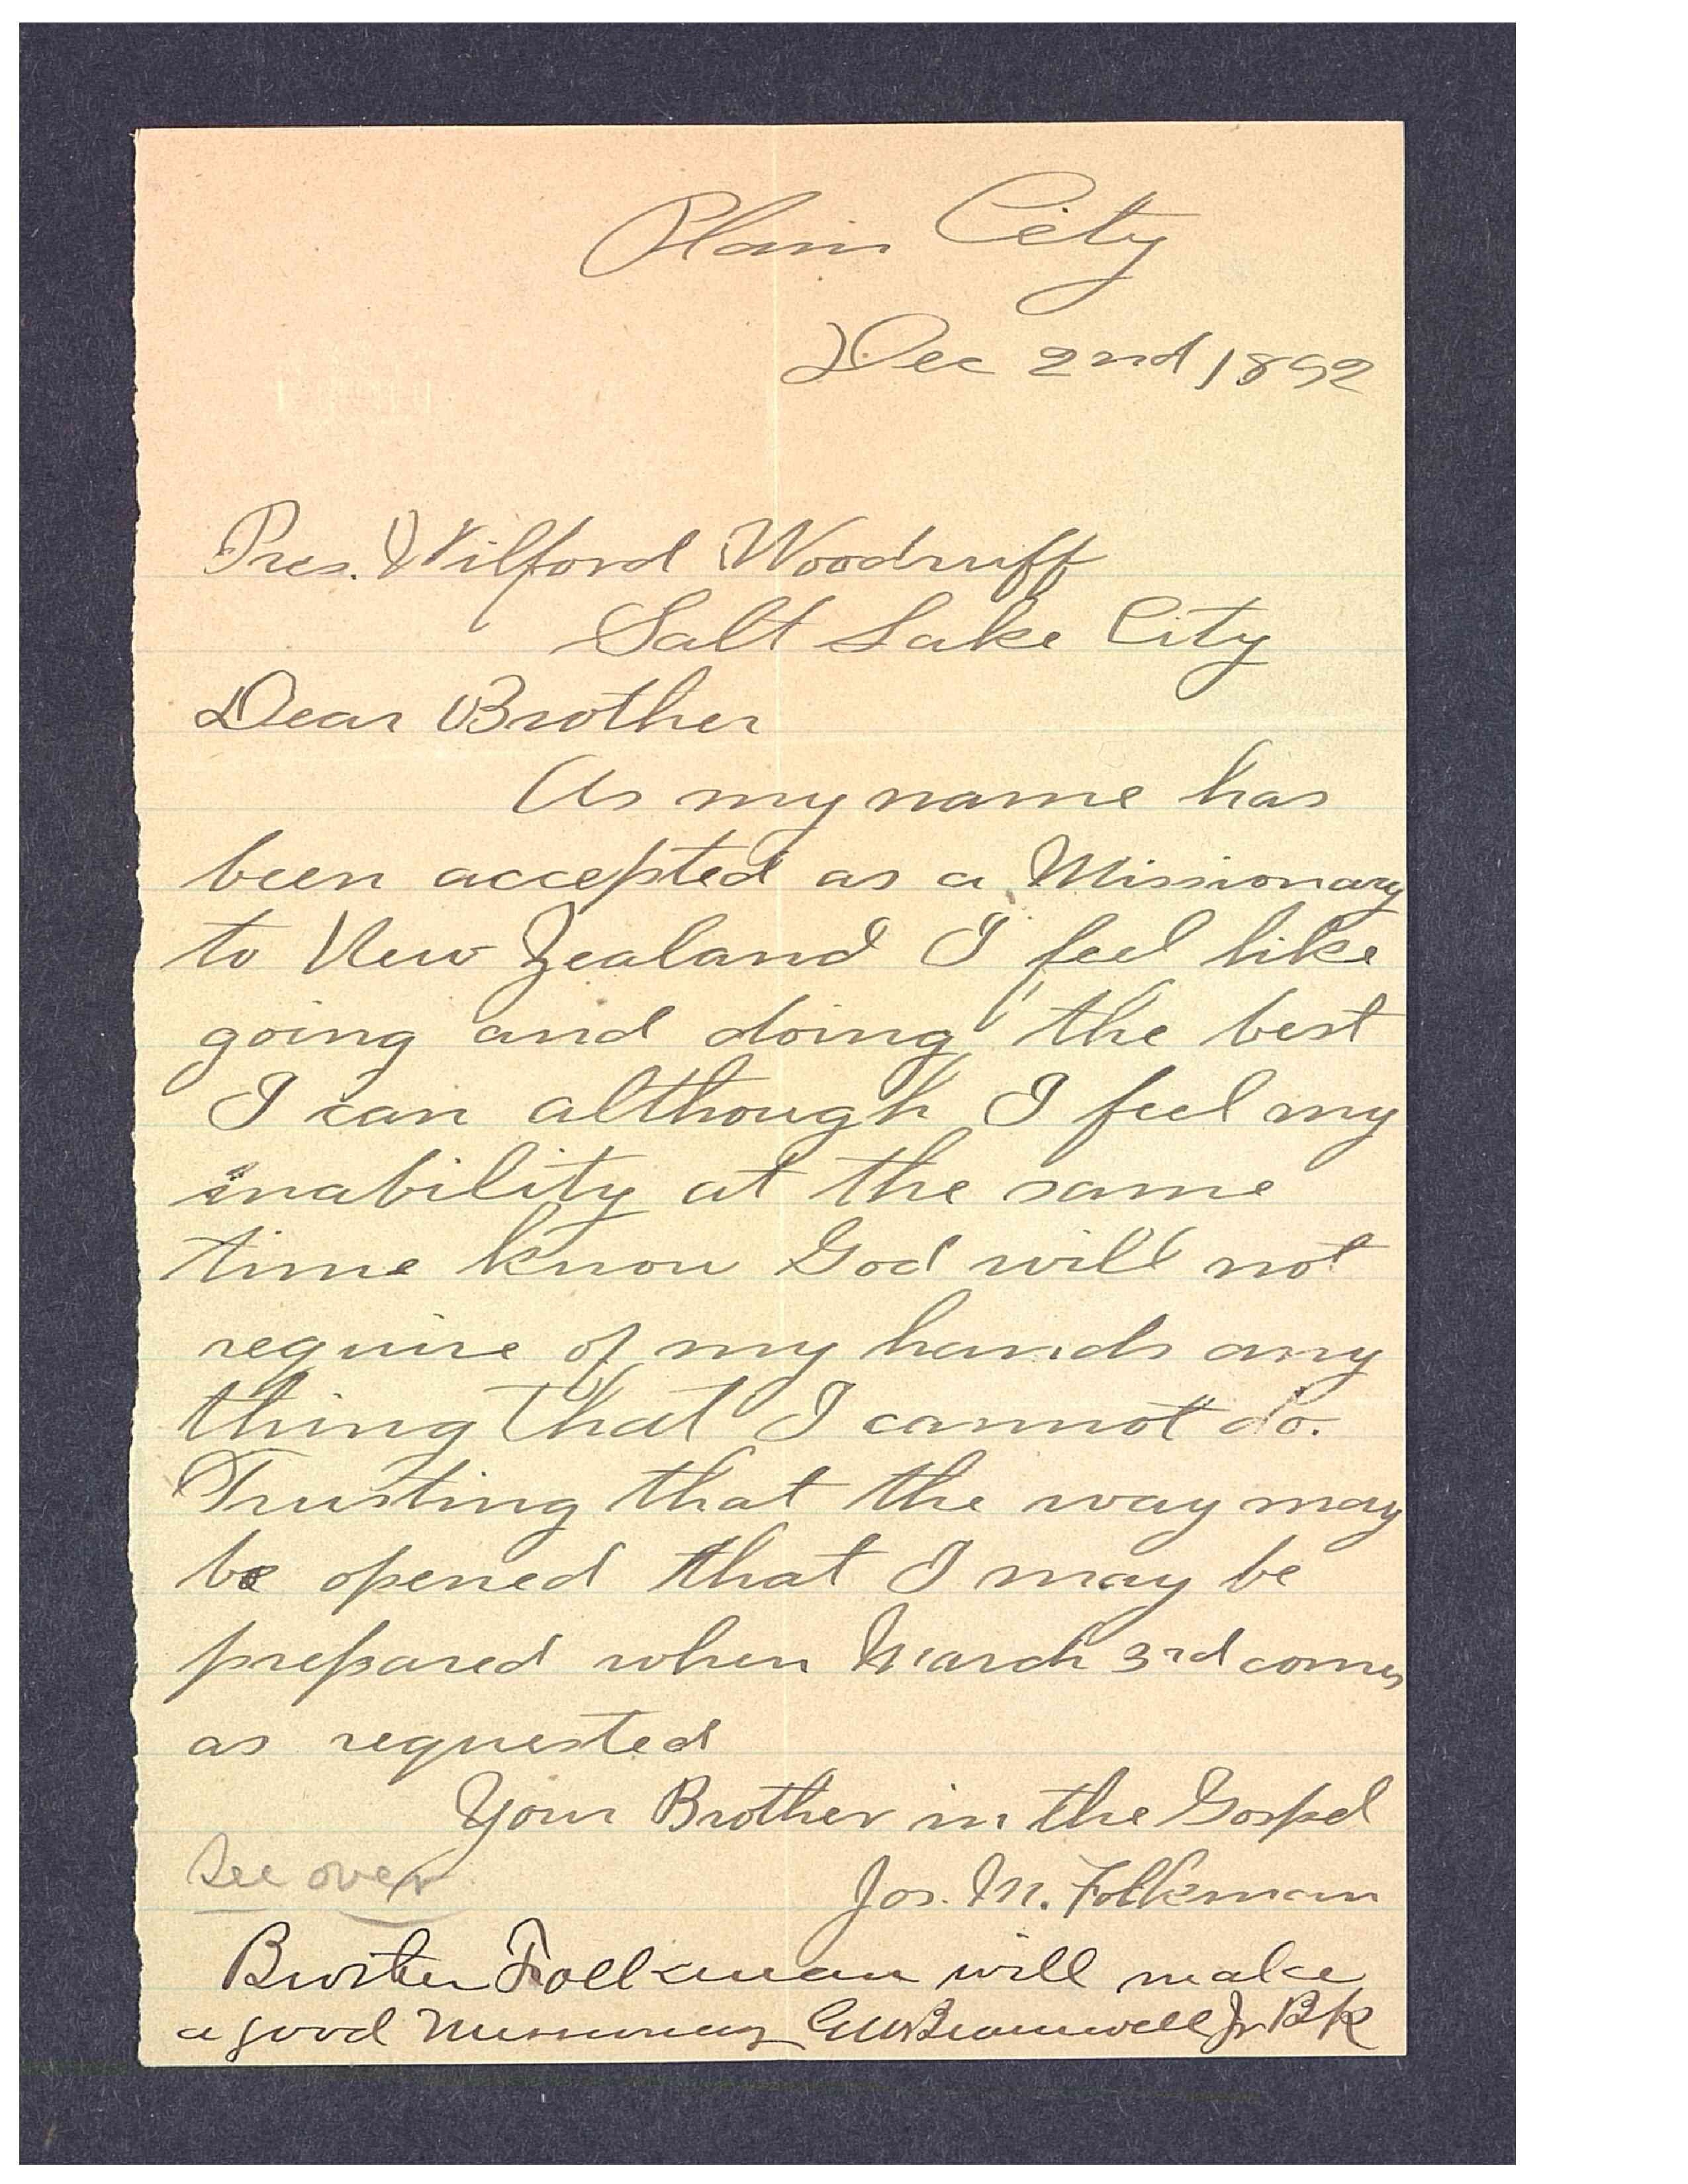 Plain City
Dec 2nd 1892
Pres. Wilford Woodruff
Salt Lake City
Dear Brother
As my name has
been accepted as a Missionary
to New Zealand I feel like
going and doing the best
I can although I feel my
inability at the same
time know God will not
require of my hands any
thing that I cannot do.
Trusting that the way may
be opened that I may be
prepared when March 3rd comes
as requested
Your Brother in the Gospel
See over
Jos. M. Folkman
Brother Folkman will make
a good Missionary GW Bramwell Jr Bp